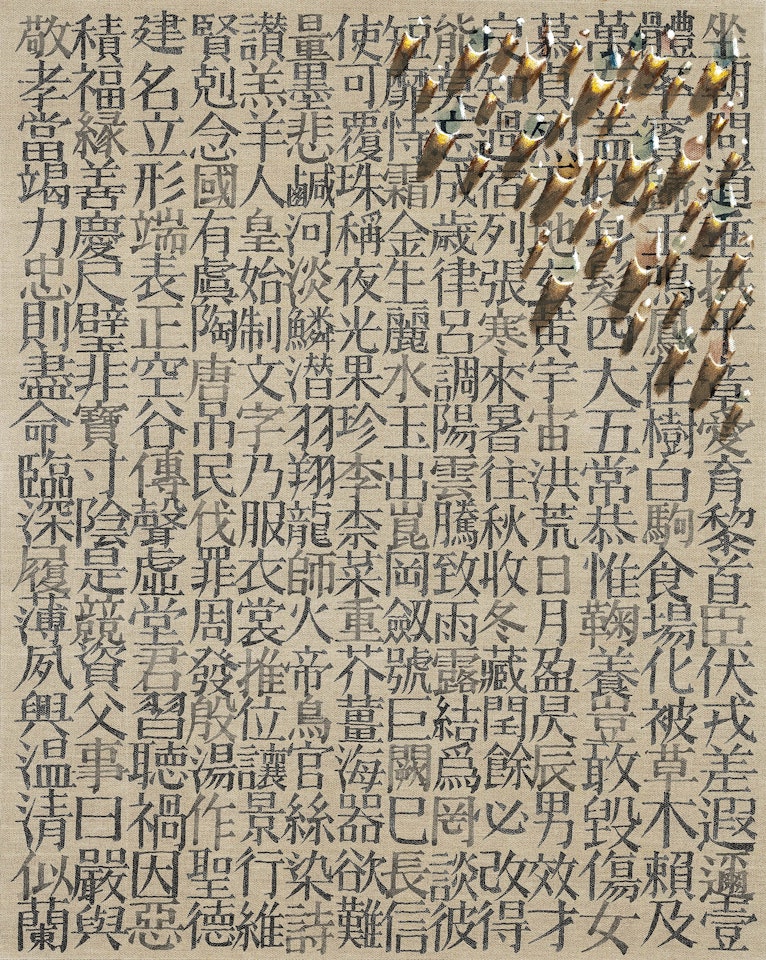 坐朝問道垂拱平章愛育黎首臣伏戎差遐邇壹
體率賓歸王鳴鳳在樹白駒食場化被草木賴及
萬蓋此身髮四大五常恭惟鞠養豈敢毀傷女
慕貞地玄黃宇宙洪荒日月盈昃辰男效才
良知過宿列張寒來暑往秋收冬藏閏餘必改得
能莫忘成歲律呂調陽雲騰致雨露結爲罔談彼
短靡恃霜金生麗水玉出崑岡劔號巨闕巳長信
使可覆珠稱夜光果珍李柰菜重芥薑海器欲難
量墨悲鹹河淡鱗潜羽翔龍師火帝鳥官絲染詩
讃羔羊人皇始制文字乃服衣裳推位讓景行維
賢剋念國有虞陶唐吊民伐罪周發殷湯作聖德
建名立形端表正空谷傳聲虛堂君習聽禍因惡
積福縁善慶尺璧非寶寸陰是競資父事曰嚴與
敬孝當竭力忠則盡命臨深履薄夙興温凊似蘭